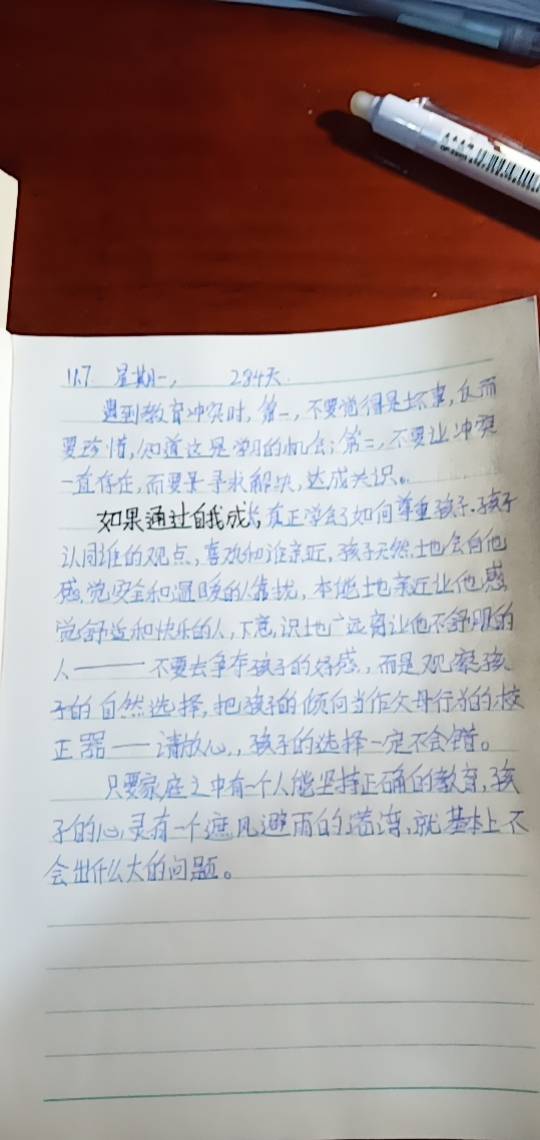 11.7 星期一, 284天.
遇到教育冲突时,第一,不要觉得是坏事,反而
要珍惜,知道这是学习的机会;第二,不要让冲突
一直存在,而要寻求解决,达成共识。
如果通过自我成长真正学会了如何尊重孩子.孩子
认同谁的观点,喜欢和谁亲近,孩子天然地会向他
感觉安全和温暖的人靠拢,本能地亲近让他感
觉舒适和快乐的人,下意识地远离让他不舒服的
人——不要去争夺孩子的好感,而是观察孩
子的自然选择,把孩子的倾向当作父母行为的校
正器——请放心,孩子的选择一定不会错。
只要家庭之中有一个人能坚持正确的教育,孩
子的心灵有一个遮风避雨的港湾,就基本上不
会出什么大的问题。